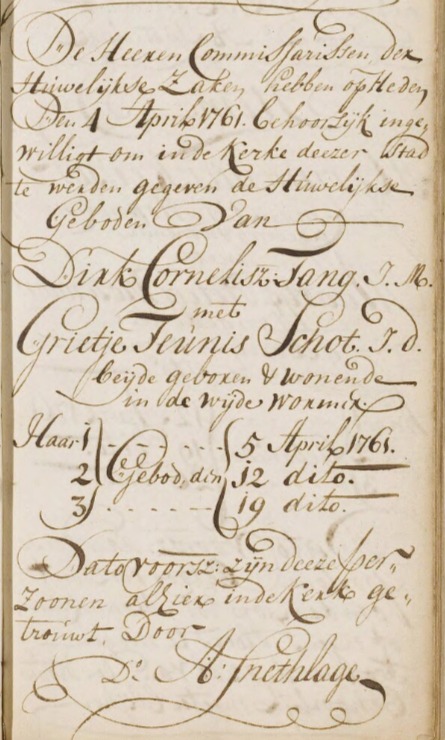 De Heeren Commissarissen der
Huwelijkse Zaken, hebben op Heden
Den 4 April 1761. behoorlyk inge„
willigt om in de Kerke deezer Stad
te werden gegeven de Huwelijkse
Geboden Van
Dirk Cornelisz: Tang. J. M.
met
Grietje Teunis Schot. J. d.
beyde geboren & wonende
in de wijde Wormer.
Haar 1 Gebod, den 5 April 1761.
2 12 dito.
3 19 dito.
Dato voorsz: zyn deeze per„
zoonen alhier in de Kerk ge„
trouwt. Door
Do. A: Snethlage